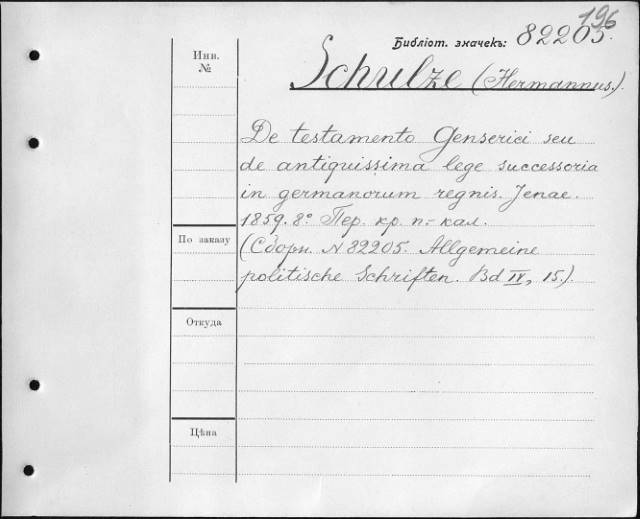 196
Библіот. значекъ: 82205.
Инв.
№
Schulze (Hermannus.).
De testamento Genserici seu
de antiquissima lege successoria
in germanorum regnis. Jenae.
1859. 8° Пер. кр. п.-кал.
По заказу
(Сборн. N 82205. Allgemeine
politische Schriften. Bd IV, 15.).
Откуда
Цѣна